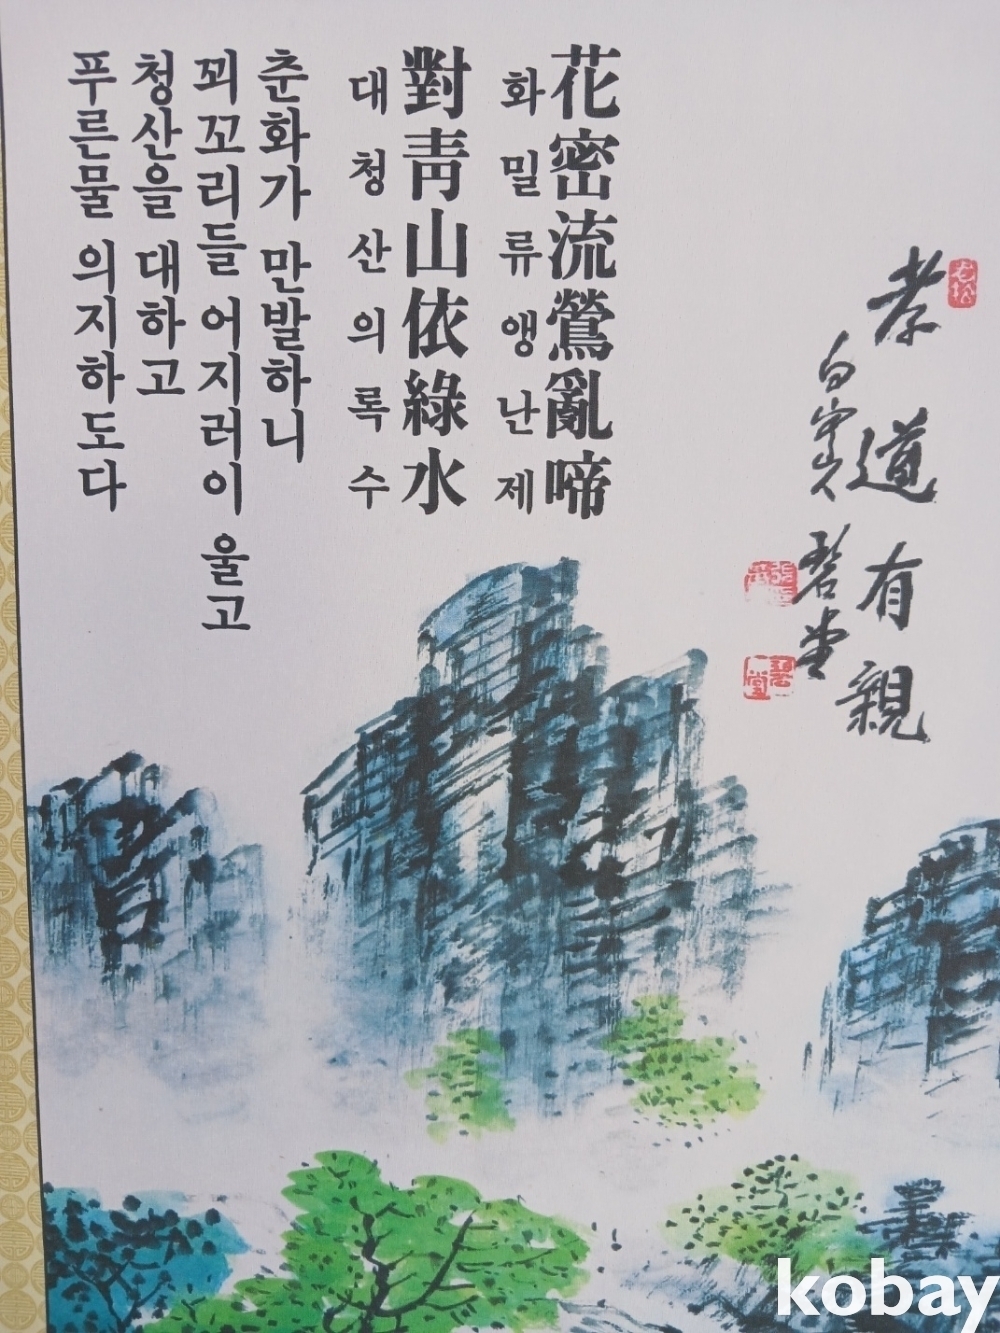 孝道有親
白雲人 碧堂
花密流鶯亂啼
화밀류앵난제
對靑山依綠水
대청산의록수
춘화가 만발하니
꾀꼬리들 어지러이 울고
청산을 대하고
푸른물 의지하도다
碧堂
kobay